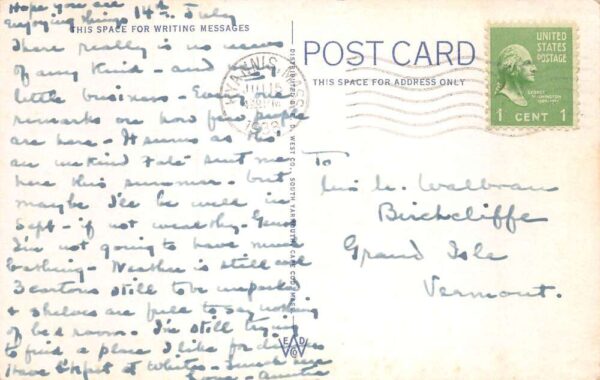 Hope you are
enjoying things 14th July
THIS SPACE FOR WRITING MESSAGES
There really is no news
of any kind - and
little business - Every one
remarks on how few people
are here - It seems as tho'
an unkind Fate sent me
here this summer - but
maybe I'll be well in
Sept - if not wealthy -
I'm not going to have much
bathing - Weather is still cold
3 cartons still to be unpacked
& shelves are full to say nothing
of bed room - I'm still trying
to find a place I like for dinners
Have slept at Whites - Much
Love - Auntie
DISTRIBUTED BY E. D. WEST CO., SOUTH YARMOUTH, CAPE COD, MASS.
POST CARD
THIS SPACE FOR ADDRESS ONLY
HYANNIS MASS
JUL 15
UNITED
STATES
POSTAGE
GEORGE
WASHINGTON
1 CENT 1
To
Birchcliffe
Grand Isle
Vermont.
E D
W
Co